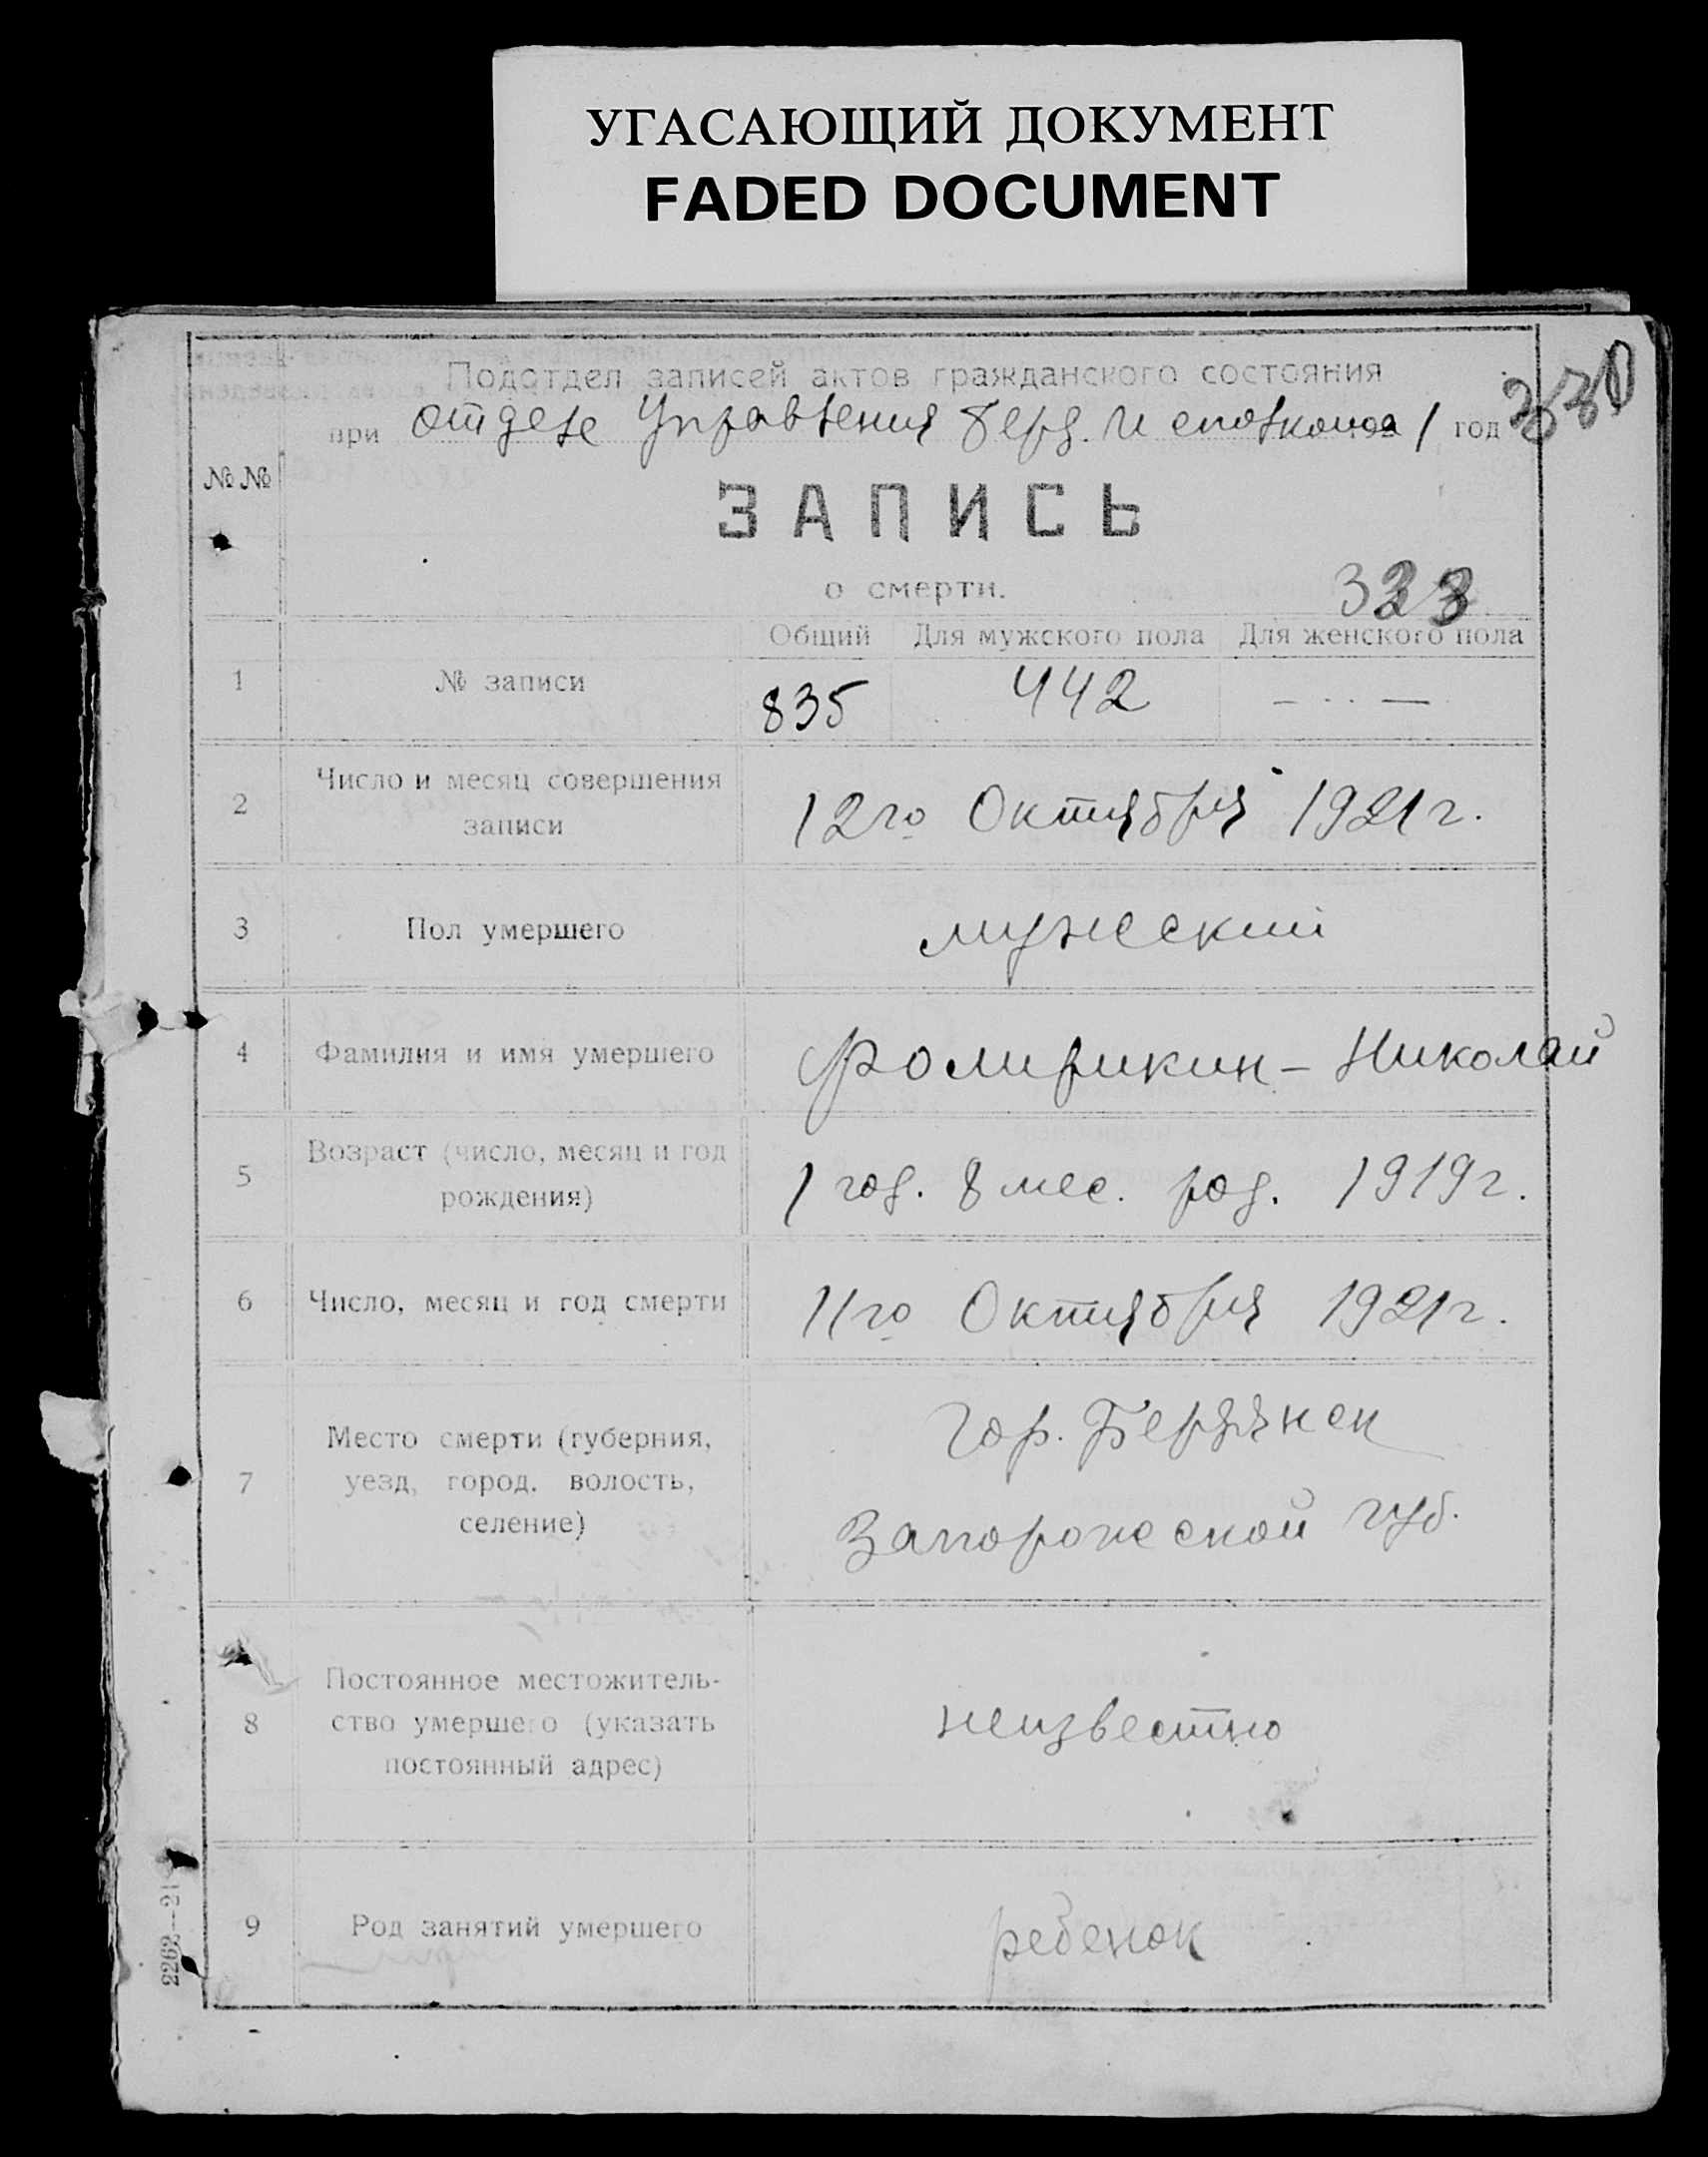 УГАСАЮЩИЙ ДОКУМЕНТ
FADED DOCUMENT
Подотдел записей актов гражданского состояния
при отделе Управления Берд. Исполкома 1 год
№ №
ЗАПИСЬ
о смерти.
323
Общий Для мужского пола Для женского пола
1 № записи 835 442 — — —
2 Число и месяц совершения
записи
12го Октября 1921 г.
3 Пол умершего мужеский
4 Фамилия и имя умершего Николай
5 Возраст (число, месяц и год
рождения)
1 год. 8 мес. род. 1919 г.
6 Число, месяц и год смерти 11го Октября 1921 г.
7 Место смерти (губерния,
уезд, город, волость,
селение)
Гор. Бердянск
Запорожской губ.
8 Постоянное местожитель-
ство умершего (указать
постоянный адрес)
неизвестно
9 Род занятий умершего ребенок
2262—21